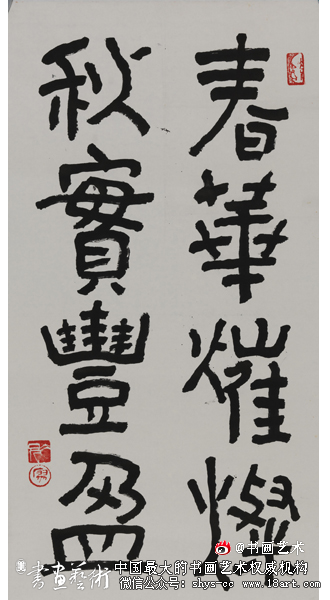 春華熣燦
秋實豐盈
@书画艺术
書畫藝術
中国最大的书画艺术权威机构
微信公众号：shys-cc www.18art.com